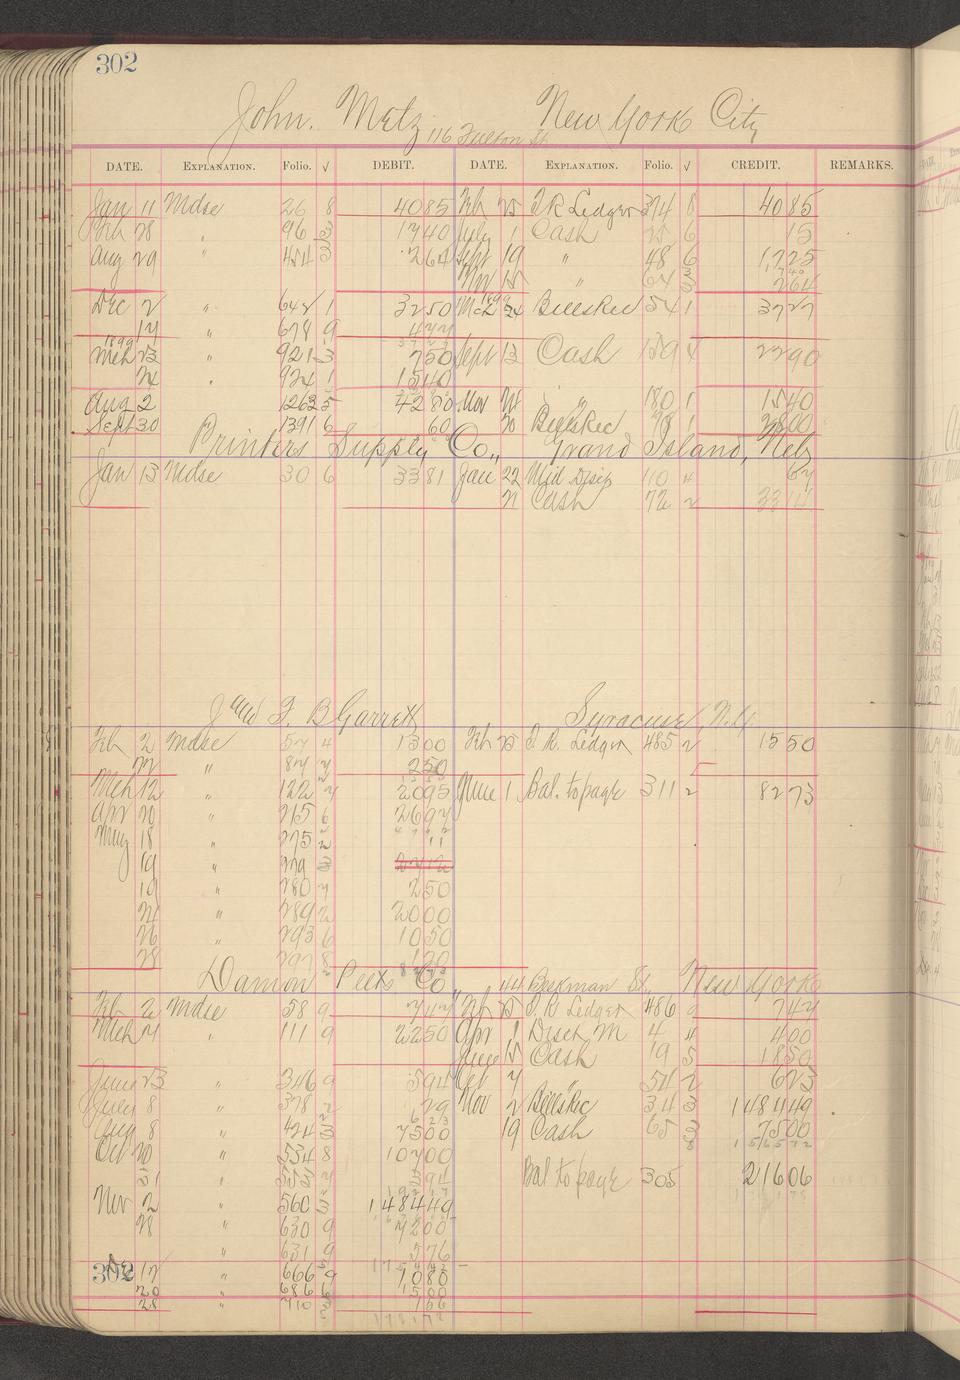 302
John. Metz 116 Fulton St. New York City
DATE. EXPLANATION. Folio. √ DEBIT. DATE. EXPLANATION. Folio. √ CREDIT. REMARKS.
Jan 11 Mdse 26 8 40 85 Feb 25 T R Ledger 374 8 40 85
Feb 28 " 96 3 17 40 July 1 Cash 25 6 15
Aug 29 " 454 3 2 64 Sept 19 " 48 6 17 25
Nov 15 " 64 2 64
Dec 2 " 642 1 32 50 Mch 1899 24 Bills Rec 54 1 37 27
17 " 678 9 4 77
1899
Mch 23 " 921 3 7 50 Sept 13 Cash 159 22 90
24 " 924 1 15 40
Aug 2 1263 5 42 80 Nov 21 " 180 1 15 40
Sept 30 1391 6 60 20 Bills Rec 98 1 28 00
Printers Supply Co., Grand Island, Neb
Jan 13 Mdse 30 6 33 81 Jan 22 Mid Disc 110 4 67
21 Cash 72 2 33 14
J and F. B Garrett Syracuse, N.Y.
Feb 2 Mdse 57 4 13 00 Feb 25 T R. Ledger 485 2 15 50
22 " 87 7 2 50
Mch 12 " 122 7 20 95 June 1 Bal. to page 311 2 82 73
Apr 20 " 215 6 26 97
May 18 " 275 2 11
19 " 279 3
19 " 280 7 2 50
21 " 289 2 20 00
26 " 293 6 10 50
28 297 8 1 20
Damon Peets Co., 44 Beekman St., New York
Feb 2 Mdse 58 9 7 47 Feb 25 T. R Ledger 486 9 7 47
Mch 7 " 111 9 22 50 Apr 1 Disct M 4 4 4 00
June 15 Cash 19 5 18 50
June 23 " 346 9 5 94 Oct 7 " 54 2 6 23
July 8 " 378 2 29 Nov 2 Bills Rec 34 3 1484 49
Aug 8 " 424 3 75 00 19 Cash 65 3 75 00
Oct 20 " 534 8 107 00
31 " 553 7 3 94 Bal to page 305 216 06
Nov 2 " 560 3 1484 49
28 " 630 9 72 00
" 631 9 5 76
302 17 " 666 9 10 80
20 " 686 6 15 00
28 " 710 3 1 66